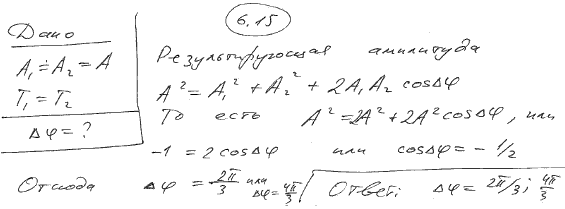 6.15
Дано
A₁ = A₂ = A
T₁ = T₂
Δφ = ?
Результирующая амплитуда
A² = A₁² + A₂² + 2A₁A₂ cosΔφ
То есть A² = 2A² + 2A² cosΔφ, или
-1 = 2cosΔφ или cosΔφ = -1/2
Отсюда Δφ = 2π/3 или Δφ = 4π/3
Ответ: Δφ = 2π/3; 4π/3